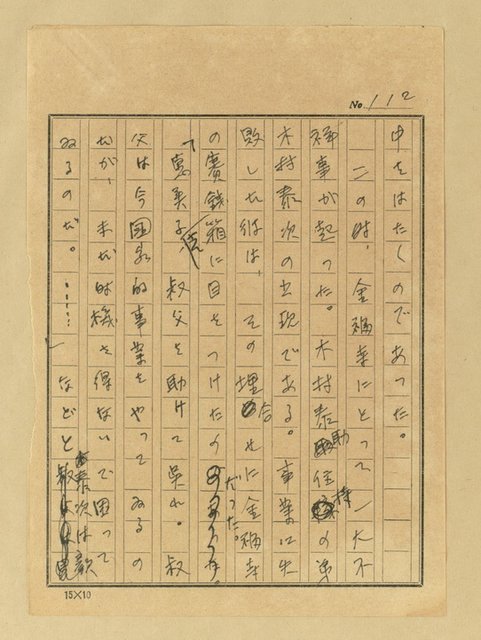 No. 112
中をはたくのであった。
この時、金福幸にとって一大不
祥事が起った。木村泰助住持の弟
木村泰次の出現である。事業に失
敗した彼は、その埋合せに金福寺
の賽錢箱に目をつけたのだった。
「寛美子、叔父を助けて呉れ。叔
父は今国家的事業をやってゐるの
だが、まだ時機を得ないで困って
ゐるのだ。……」などと泰次は
15×10